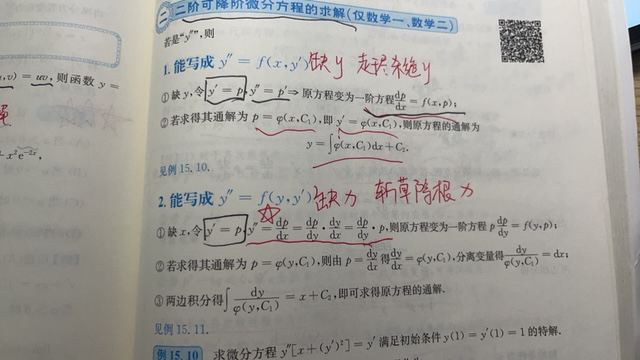 二 二阶可降阶微分方程的求解(仅数学一、数学二)
若是“y″”,则
1. 能写成 y″ = f(x,y′) 缺y 赶尽杀绝y
uv, 则函数 y =
① 缺 y,令 y′ = p, y″ = p′ ⇒ 原方程变为一阶方程 dp/dx = f(x,p);
② 若求得其通解为 p = φ(x,C₁),即 y′ = φ(x,C₁),则原方程的通解为
y = ∫φ(x,C₁)dx + C₂.
见例 15.10.
2. 能写成 y″ = f(y,y′) 缺x 斩草除根x
① 缺 x,令 y′ = p, y″ = dp/dx = dp/dy · dy/dx = dp/dy · p, 则原方程变为一阶方程 p dp/dy = f(y,p);
② 若求得其通解为 p = φ(y,C₁),则由 p = dy/dx 得 dy/dx = φ(y,C₁),分离变量得 dy/φ(y,C₁) = dx;
③ 两边积分得 ∫ dy/φ(y,C₁) = x + C₂,即可求得原方程的通解.
见例 15.11.
例 15.10 求微分方程 y″[x + (y′)²] = y′ 满足初始条件 y(1) = y′(1) = 1 的特解.